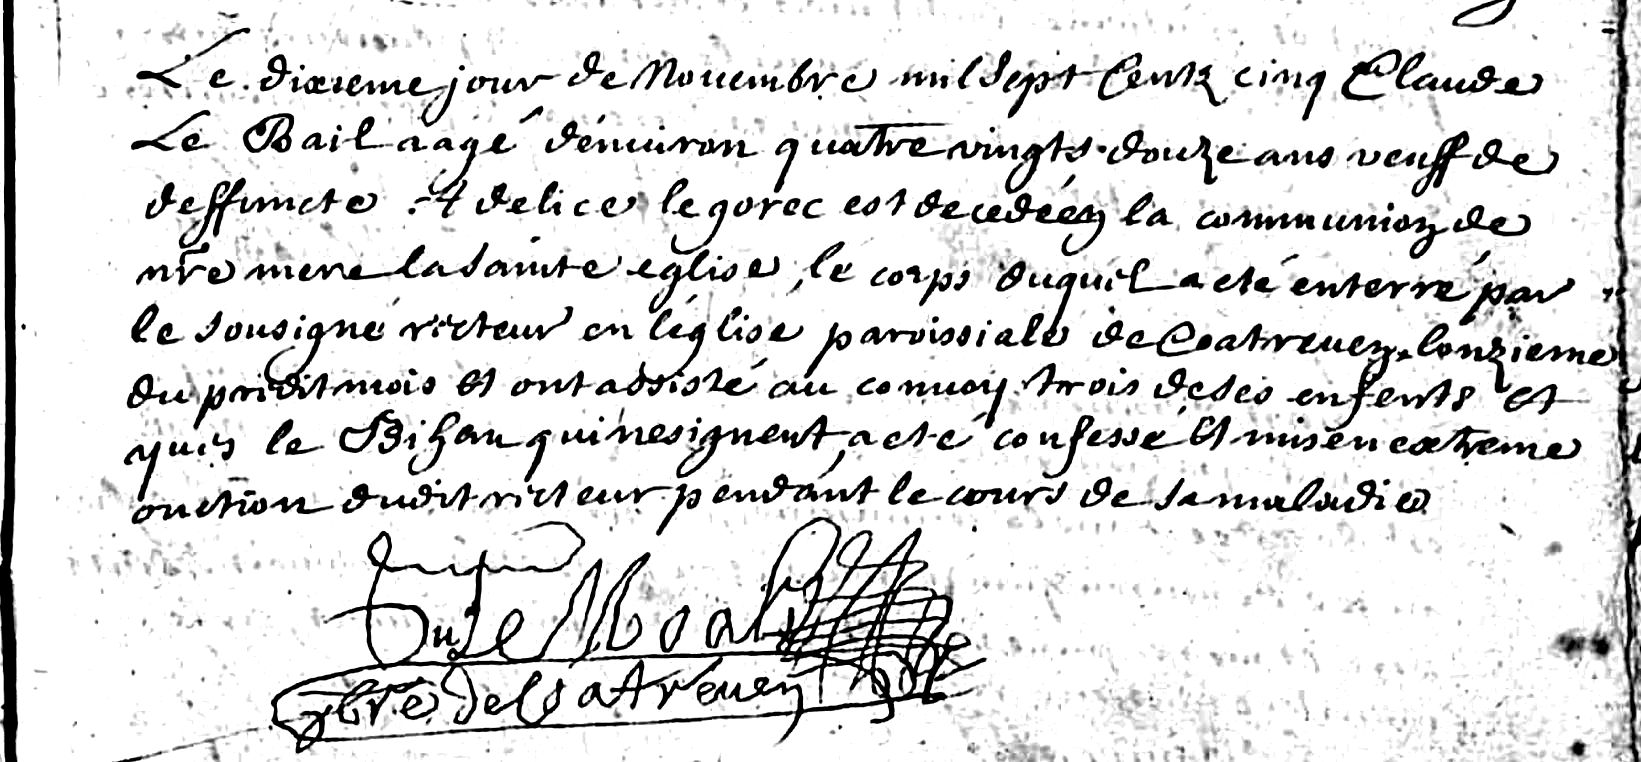 Le dixieme jour de Novembre mil sept Centz cinq Claude
Le Bail aagé d'enuiron quatre vingts douze ans veuff de
deffuncte Adelice le gorec est decedé en la communion de
nre mere la Sainte eglise, le corps duquel a eté enterré par
le sousigné recteur en l'église paroissiale de Coatreuen, lonzieme
du predit mois Et ont assisté au conuoy trois de ses enfents Et
yues le Bihan qui ne signent, a eté confessé Et mis en extreme
onction dudit recteur pendant le cours de sa maladie
de Coatreuen